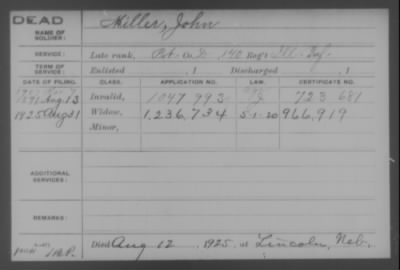 DEAD
NAME OF SOLDIER: Miller, John
SERVICE: Late rank, Pvt. Co. D, 140 Reg't Ill. Inf.
TERM OF SERVICE: Enlisted , 1 Discharged , 1
DATE OF FILING. CLASS. APPLICATION NO. LAW. CERTIFICATE NO.
1891 Aug 13 Invalid, 1047 993 723 681
1925 Aug 31 Widow, 1,236,734 5-1-20 966,919
Minor,
ADDITIONAL SERVICES:
REMARKS:
Died Aug 12, 1925, at Lincoln, Neb.